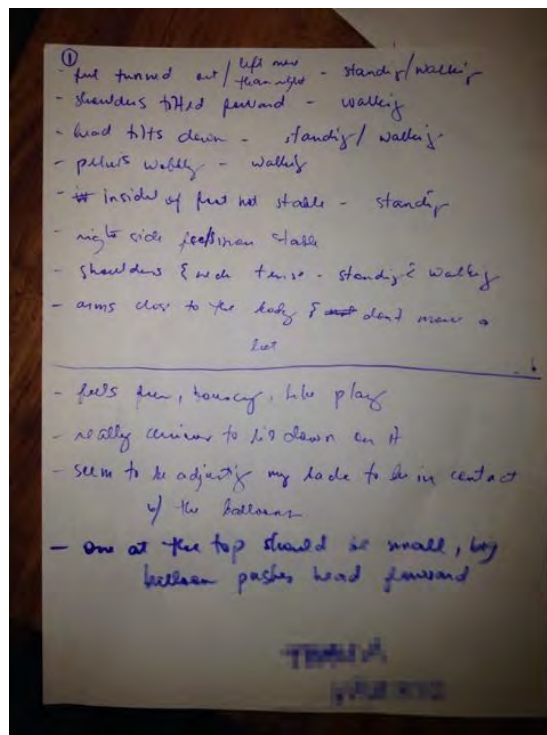 ①
- feet turned out / left more than right - standing/walking
- shoulders tilted forward - walking
- head tilts down - standing/walking
- pelvis wobbly - walking
- inside of feet not stable - standing
- right side feels more stable
- shoulders & neck tense - standing & walking
- arms close to the body & don't move a
lot
- feels fun, bouncy, like play
- really curious to lie down on it
- seem to be adjusting my back to be in contact
w/ the balloons
- one at the top should be small, big
balloon pushes head forward